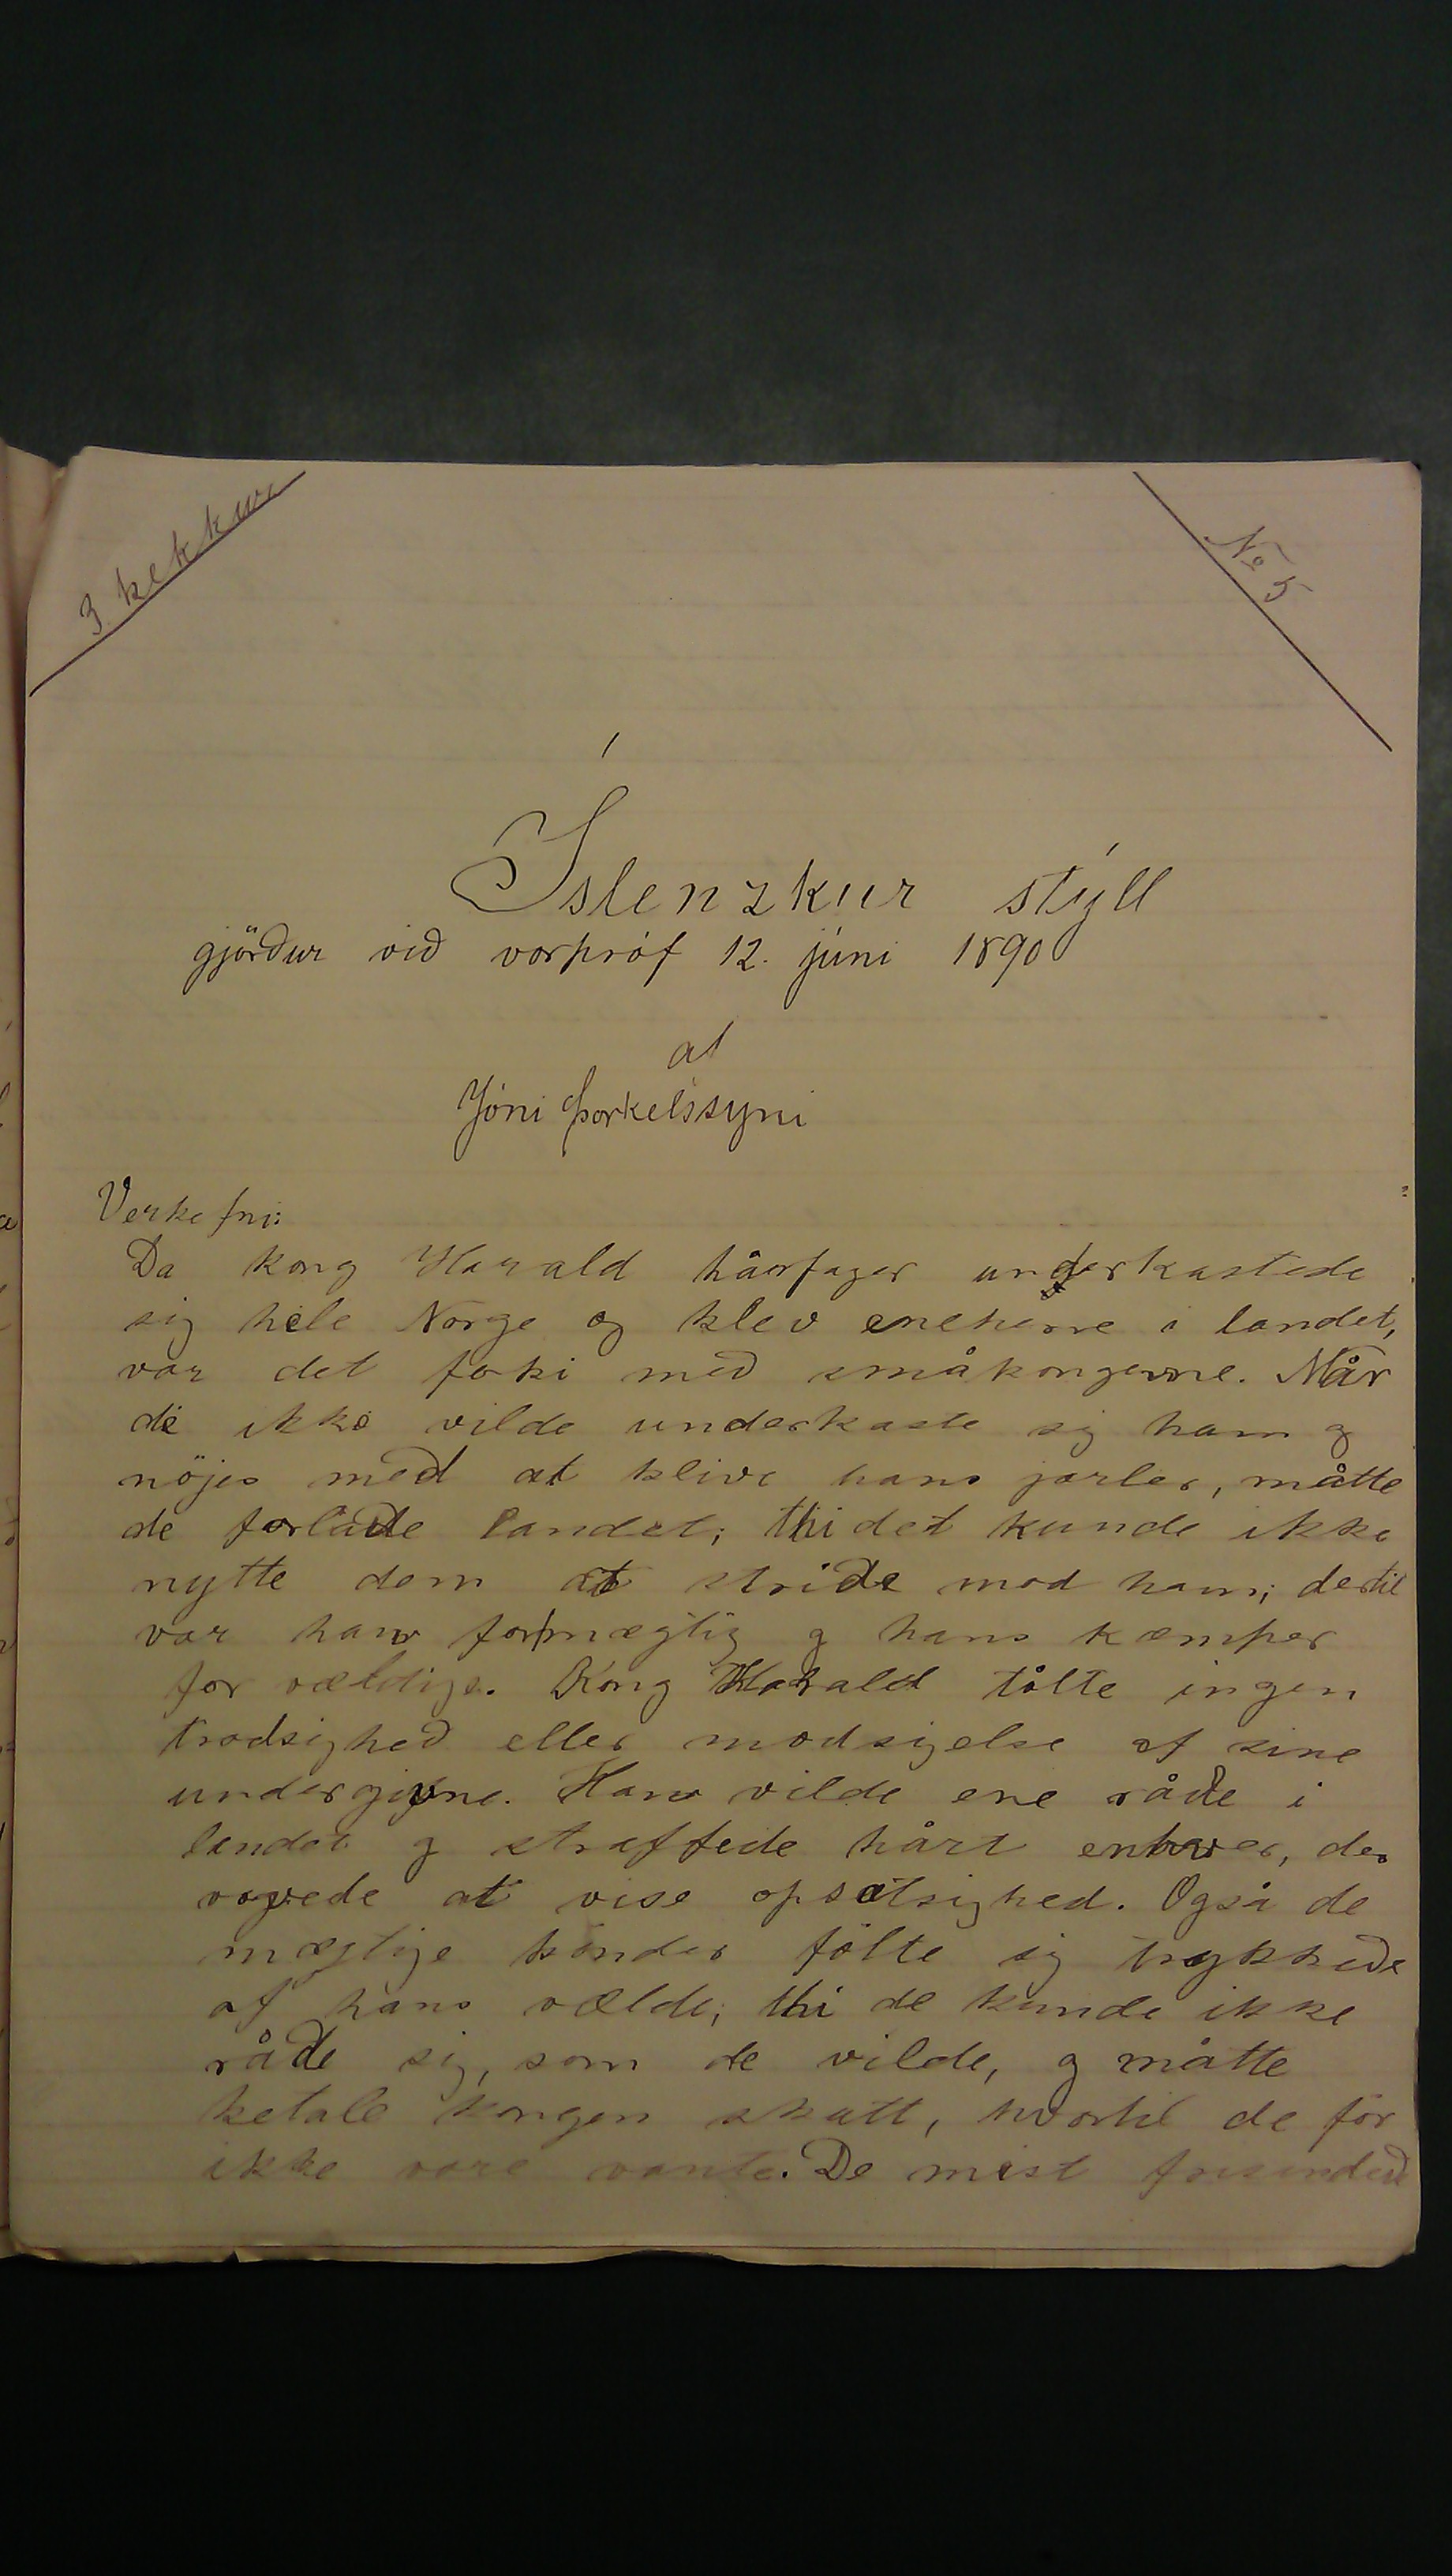 3. bekkur
No 5
Íslenzkur stýll
gjörður við vorpróf 12. júni 1890
af
Jóni Þorkelssyni
Verkefni:
Da kong Harald hårfager underkastede
sig hele Norge og blev eneherre i landet,
var det forbi med småkongerne. Når
de ikke vilde underkaste sig ham og
nöjes med at blive hans jarler, måtte
de forlade landet; thi det kunde ikke
nytte dem at stride mod ham; dertil
var han formægtig og hans kæmper
for vældige. Kong Harald tålte ingen
trodsighed eller modsigelse af sine
undergivne. Han vilde ene råde i
landet og straffede hårt enhver, der
vovede at vise opsætsighed. Også de
mægtige bönder fölte sig trykkede
af hans vælde; thi de kunde ikke
råde sig, som de vilde, og måtte
betale kongen skatt, hvortil de för
ikke vare vante. De mest frisindede